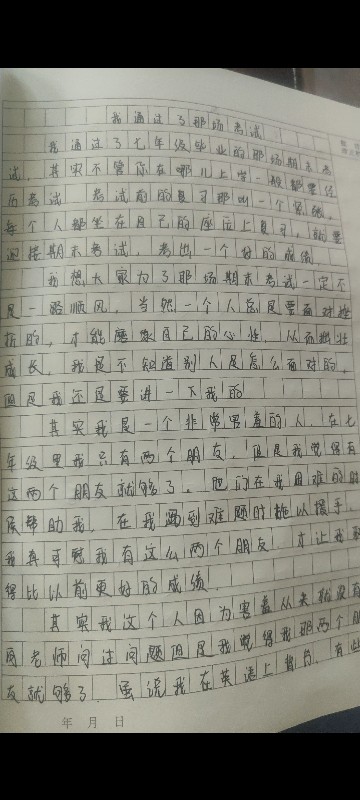 我通过了那场考试
我通过了七年级毕业的那场期末考
试，其实不管你在哪儿上学一般都要经
历考试 考试前的复习那叫一个紧张，
每个人都坐在自己的座位上复习，都要
迎接期末考试，考出一个好的成绩
我想大家为了那场期末考试一定不
是一路顺风，当然一个人总是要面对挫
折的，才能磨练自己的心性，从而茁壮
成长，我是不知道别人是怎么面对的，
但是我还是要讲一下我的
其实我是一个非常害羞的人，在七
年级里我只有两个朋友，但是我觉得有
这两个朋友就够了，他们在我困难的时
候帮助我，在我遇到难题时施以援手，
我真可 我有这么两个朋友，才让我取
得比以前更好的成绩
其实我这个人因为害羞从来都没有
问老师问过问题但是我觉得我那两个朋
友就够了，虽说我在英语上 有些
年 月 日